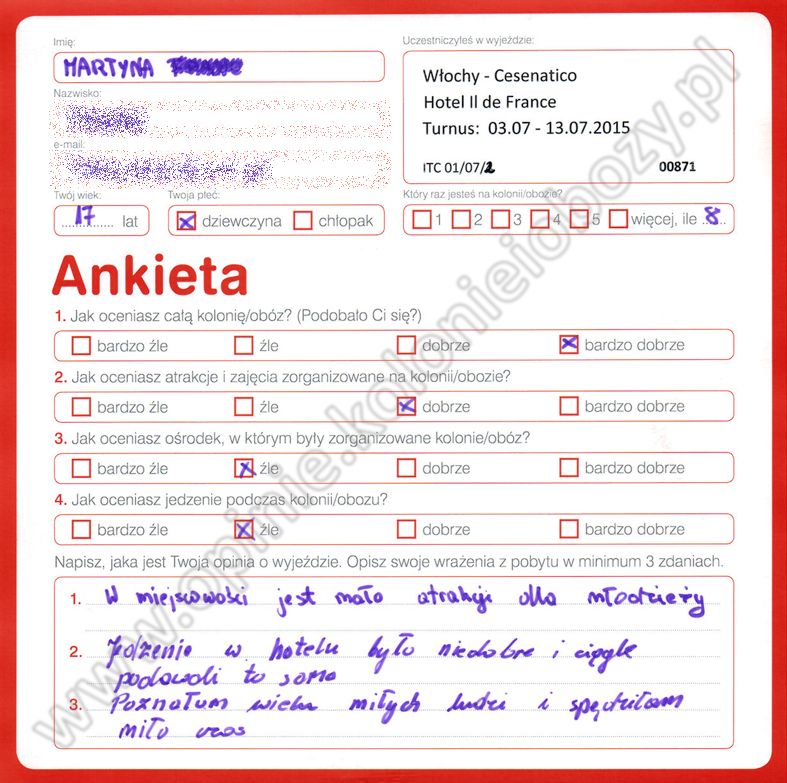 Imię:
MARTYNA
Uczestniczyłeś w wyjeździe:
Włochy - Cesenatico
Hotel Il de France
Turnus: 03.07 - 13.07.2015
ITC 01/07/2 00871
Nazwisko:
e-mail:
Twój wiek:
17 lat
Twoja płeć:
dziewczyna chłopak
Który raz jesteś na kolonii/obozie?
1 2 3 4 5 więcej, ile 8
Ankieta
1. Jak oceniasz całą kolonię/obóz? (Podobało Ci się?)
bardzo źle źle dobrze bardzo dobrze
2. Jak oceniasz atrakcje i zajęcia zorganizowane na kolonii/obozie?
bardzo źle źle dobrze bardzo dobrze
3. Jak oceniasz ośrodek, w którym były zorganizowane kolonie/obóz?
bardzo źle źle dobrze bardzo dobrze
4. Jak oceniasz jedzenie podczas kolonii/obozu?
bardzo źle źle dobrze bardzo dobrze
Napisz, jaka jest Twoja opinia o wyjeździe. Opisz swoje wrażenia z pobytu w minimum 3 zdaniach.
1. W miejscowości jest mało atrakcji dla młodzieży
2. Jedzenie w hotelu było niedobre i ciągle
podawali to samo
3. Poznałam wielu miłych ludzi i spędziłam
miło czas
www.opinie.kolonieiobozy.pl